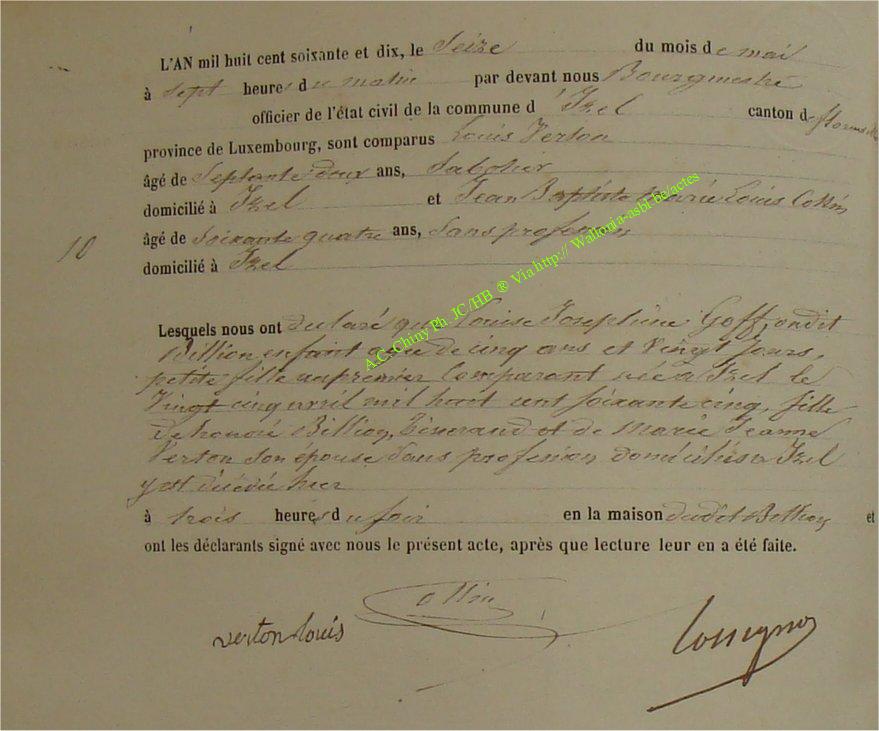 L'AN mil huit cent soixante et dix, le Seize du mois de mai
à Sept heures du matin par devant nous Bourgmestre
officier de l'état civil de la commune d' Izel canton de
province de Luxembourg, sont comparus Louis Verton
âgé de Septante deux ans, Sabotier
domicilié à Izel et Jean Baptiste Marie Louis Collin
10 âgé de Soixante quatre ans, Sans profession
domicilié à Izel
Lesquels nous ont déclaré que Louise Josephine Goff, ondit
Billion enfant agée de cinq ans et vingt jours,
petite fille au premier Comparant née à Izel le
Vingt cinq avril mil huit cent soixante cinq, fille
de honoré Billion, Tisserand et de Marie Jeanne
Verton Son épouse Sans profession domiciliés à Izel
y est décédée hier
à trois heures du soir en la maison dudit et
ont les déclarants signé avec nous le présent acte, après que lecture leur en a été faite.
verton louis Collin
A.C. Chiny Ph. JC/HB ® Via http:// Wallonia-asbl.be/actes